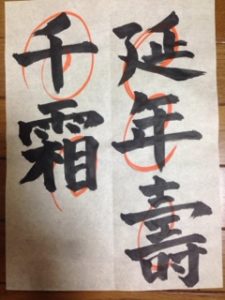 延年壽
千霜